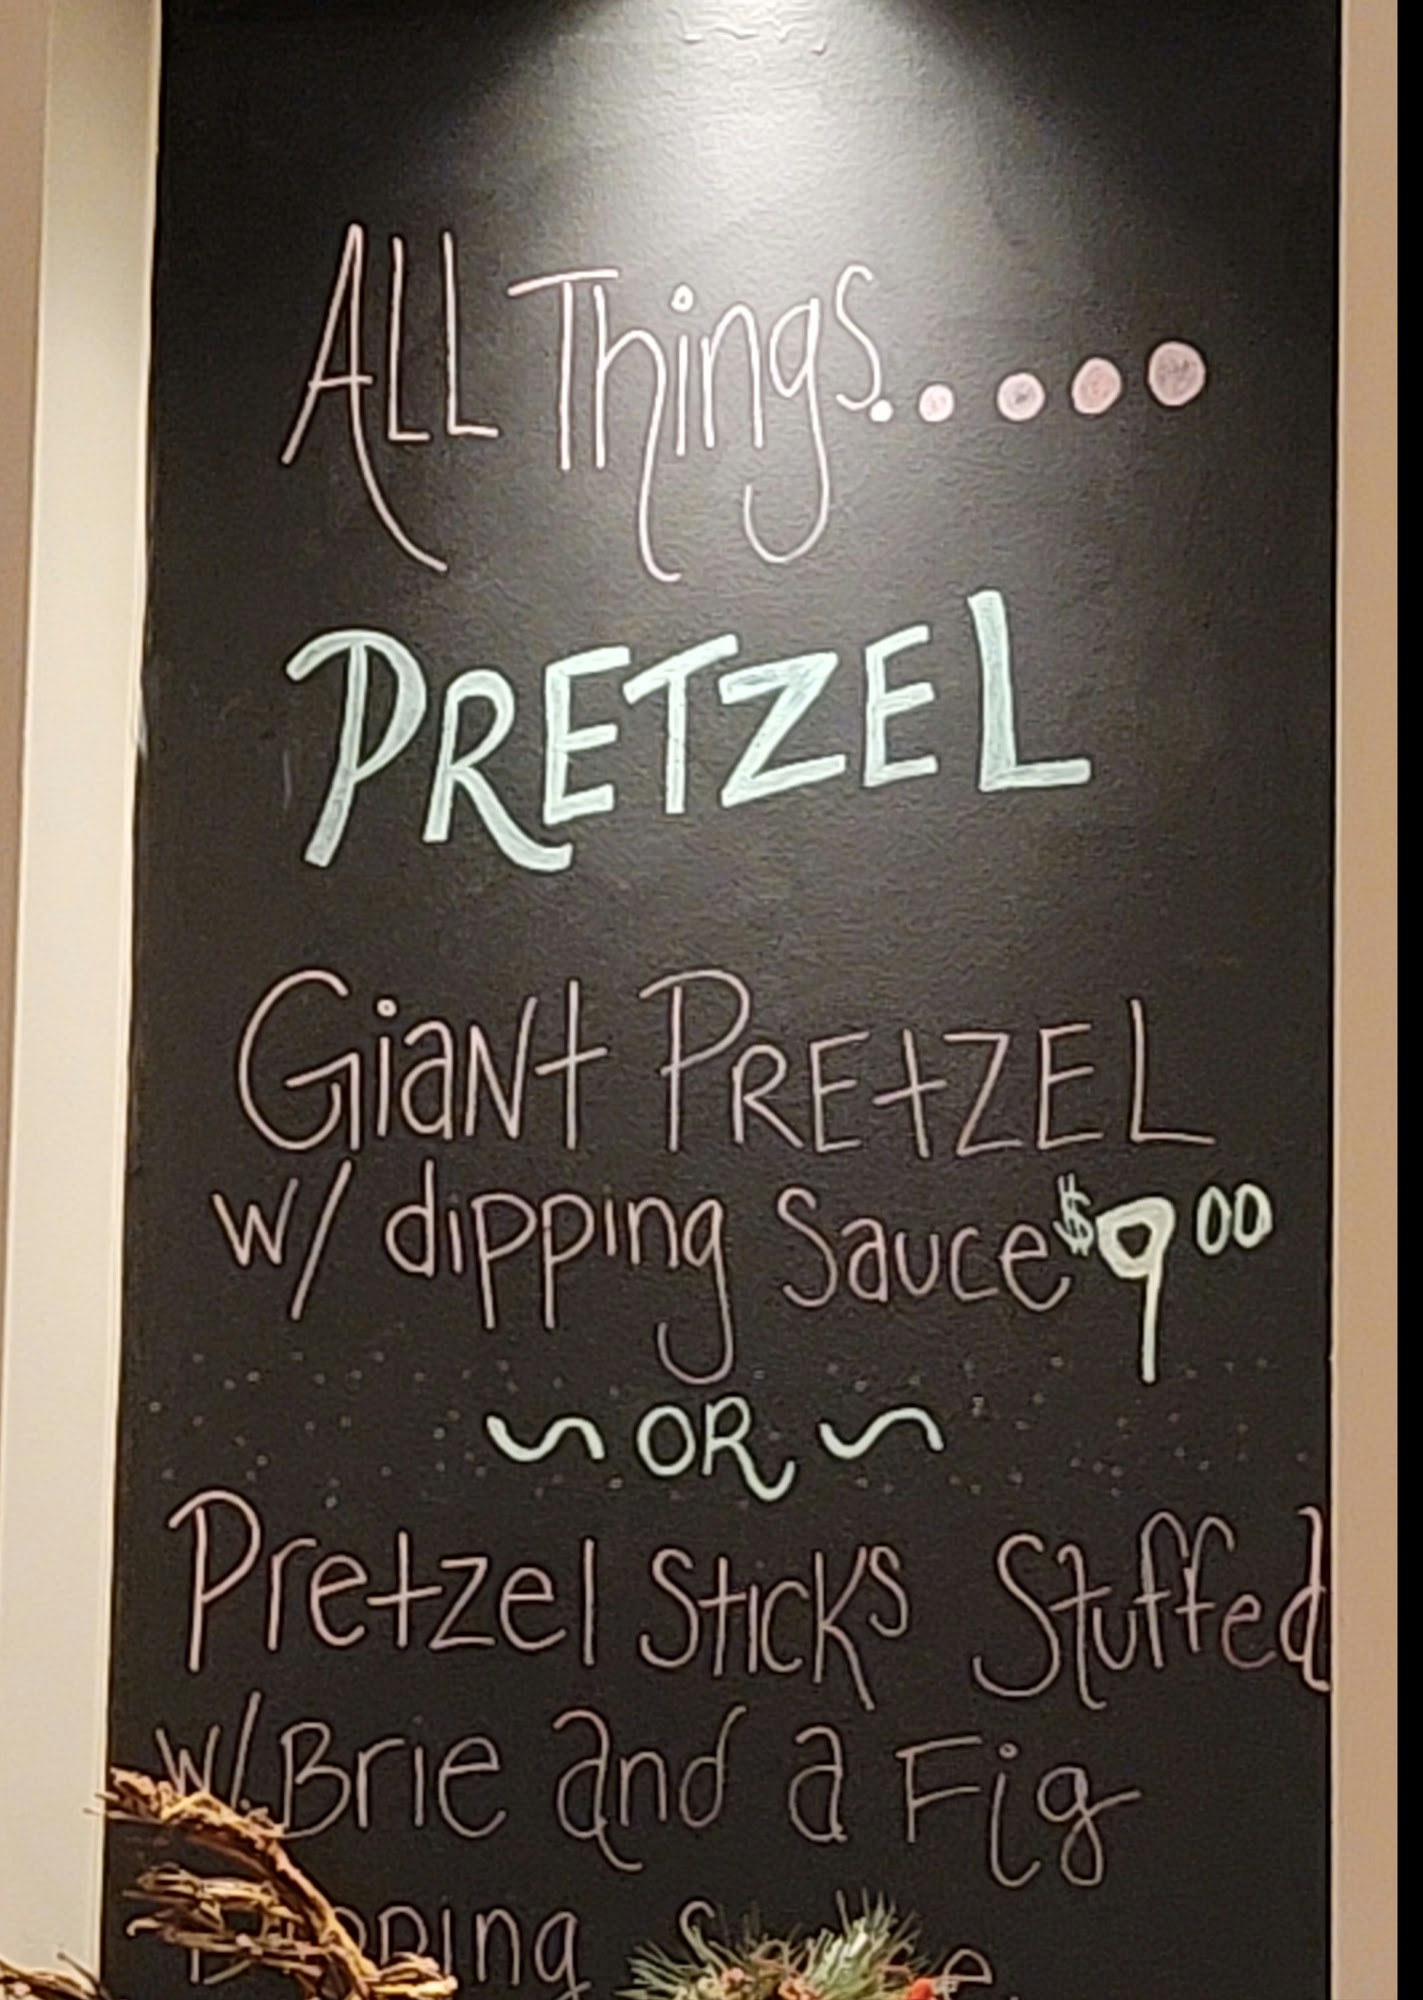 ALL Things.....
PRETZEL
GiaNt PREtZEL
w/ dipping Sauce $9 00
~ OR ~
Pretzel Sticks Stuffed
w/ Brie and a Fig